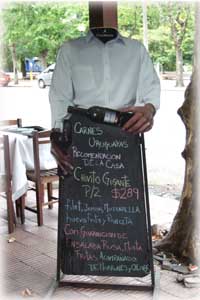 CARNES
URUGUAYAS
RECOMENDACION
DE LA CASA
CHIVITO GIGANTE
P/2 $289
filet, Jamon, Muzzarella
huevo frito, y Panceta
Con GUARNICION DE
ENSALADA RUSA, MIXTA
FRITAS ACOMPAÑADO
DE MORRONES Y OLIVAS